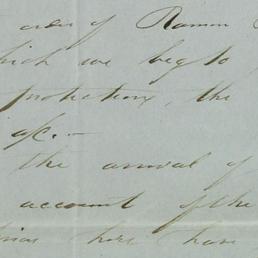 order of Ramon
which we beg to
protection, the
a/c.—
the arrival of
account of the
here have